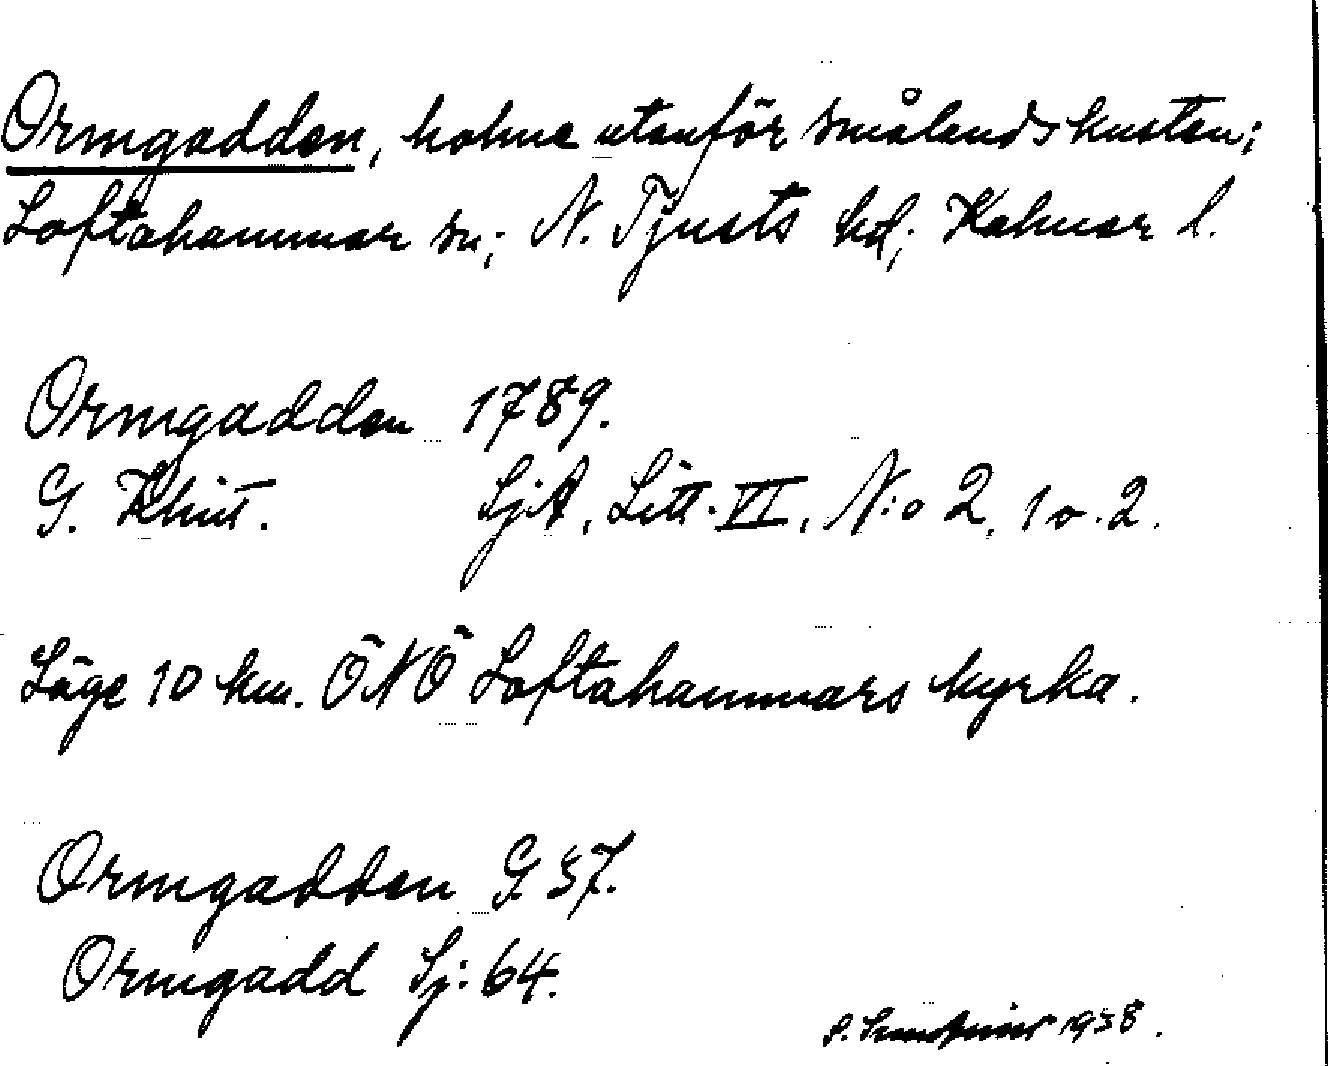 Ormgadden, holme utanför smålandskusten;
Loftahammar sn; N. Tjusts hd; Kalmar l.
Ormgadden 1789.
G. Klint. SjA, Litt. VI, N:o 2, 1 o. 2.
Läge 10 km. ÖNÖ Loftahammars kyrka.
Ormgadden G 37.
Ormgadd Sj: 64.
1938.